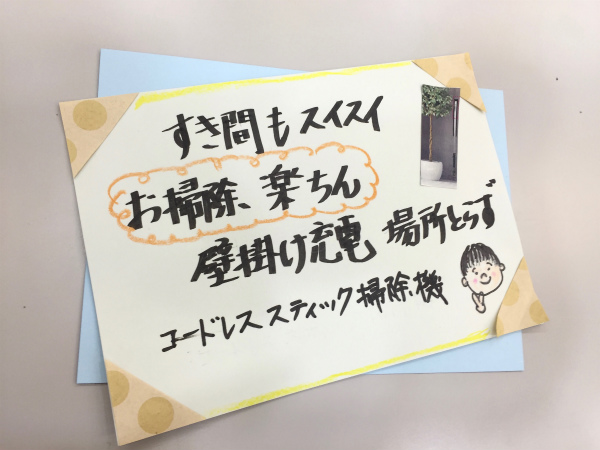 すき間もスイスイ
お掃除、楽ちん
壁掛け充電 場所とらず
コードレススティック掃除機